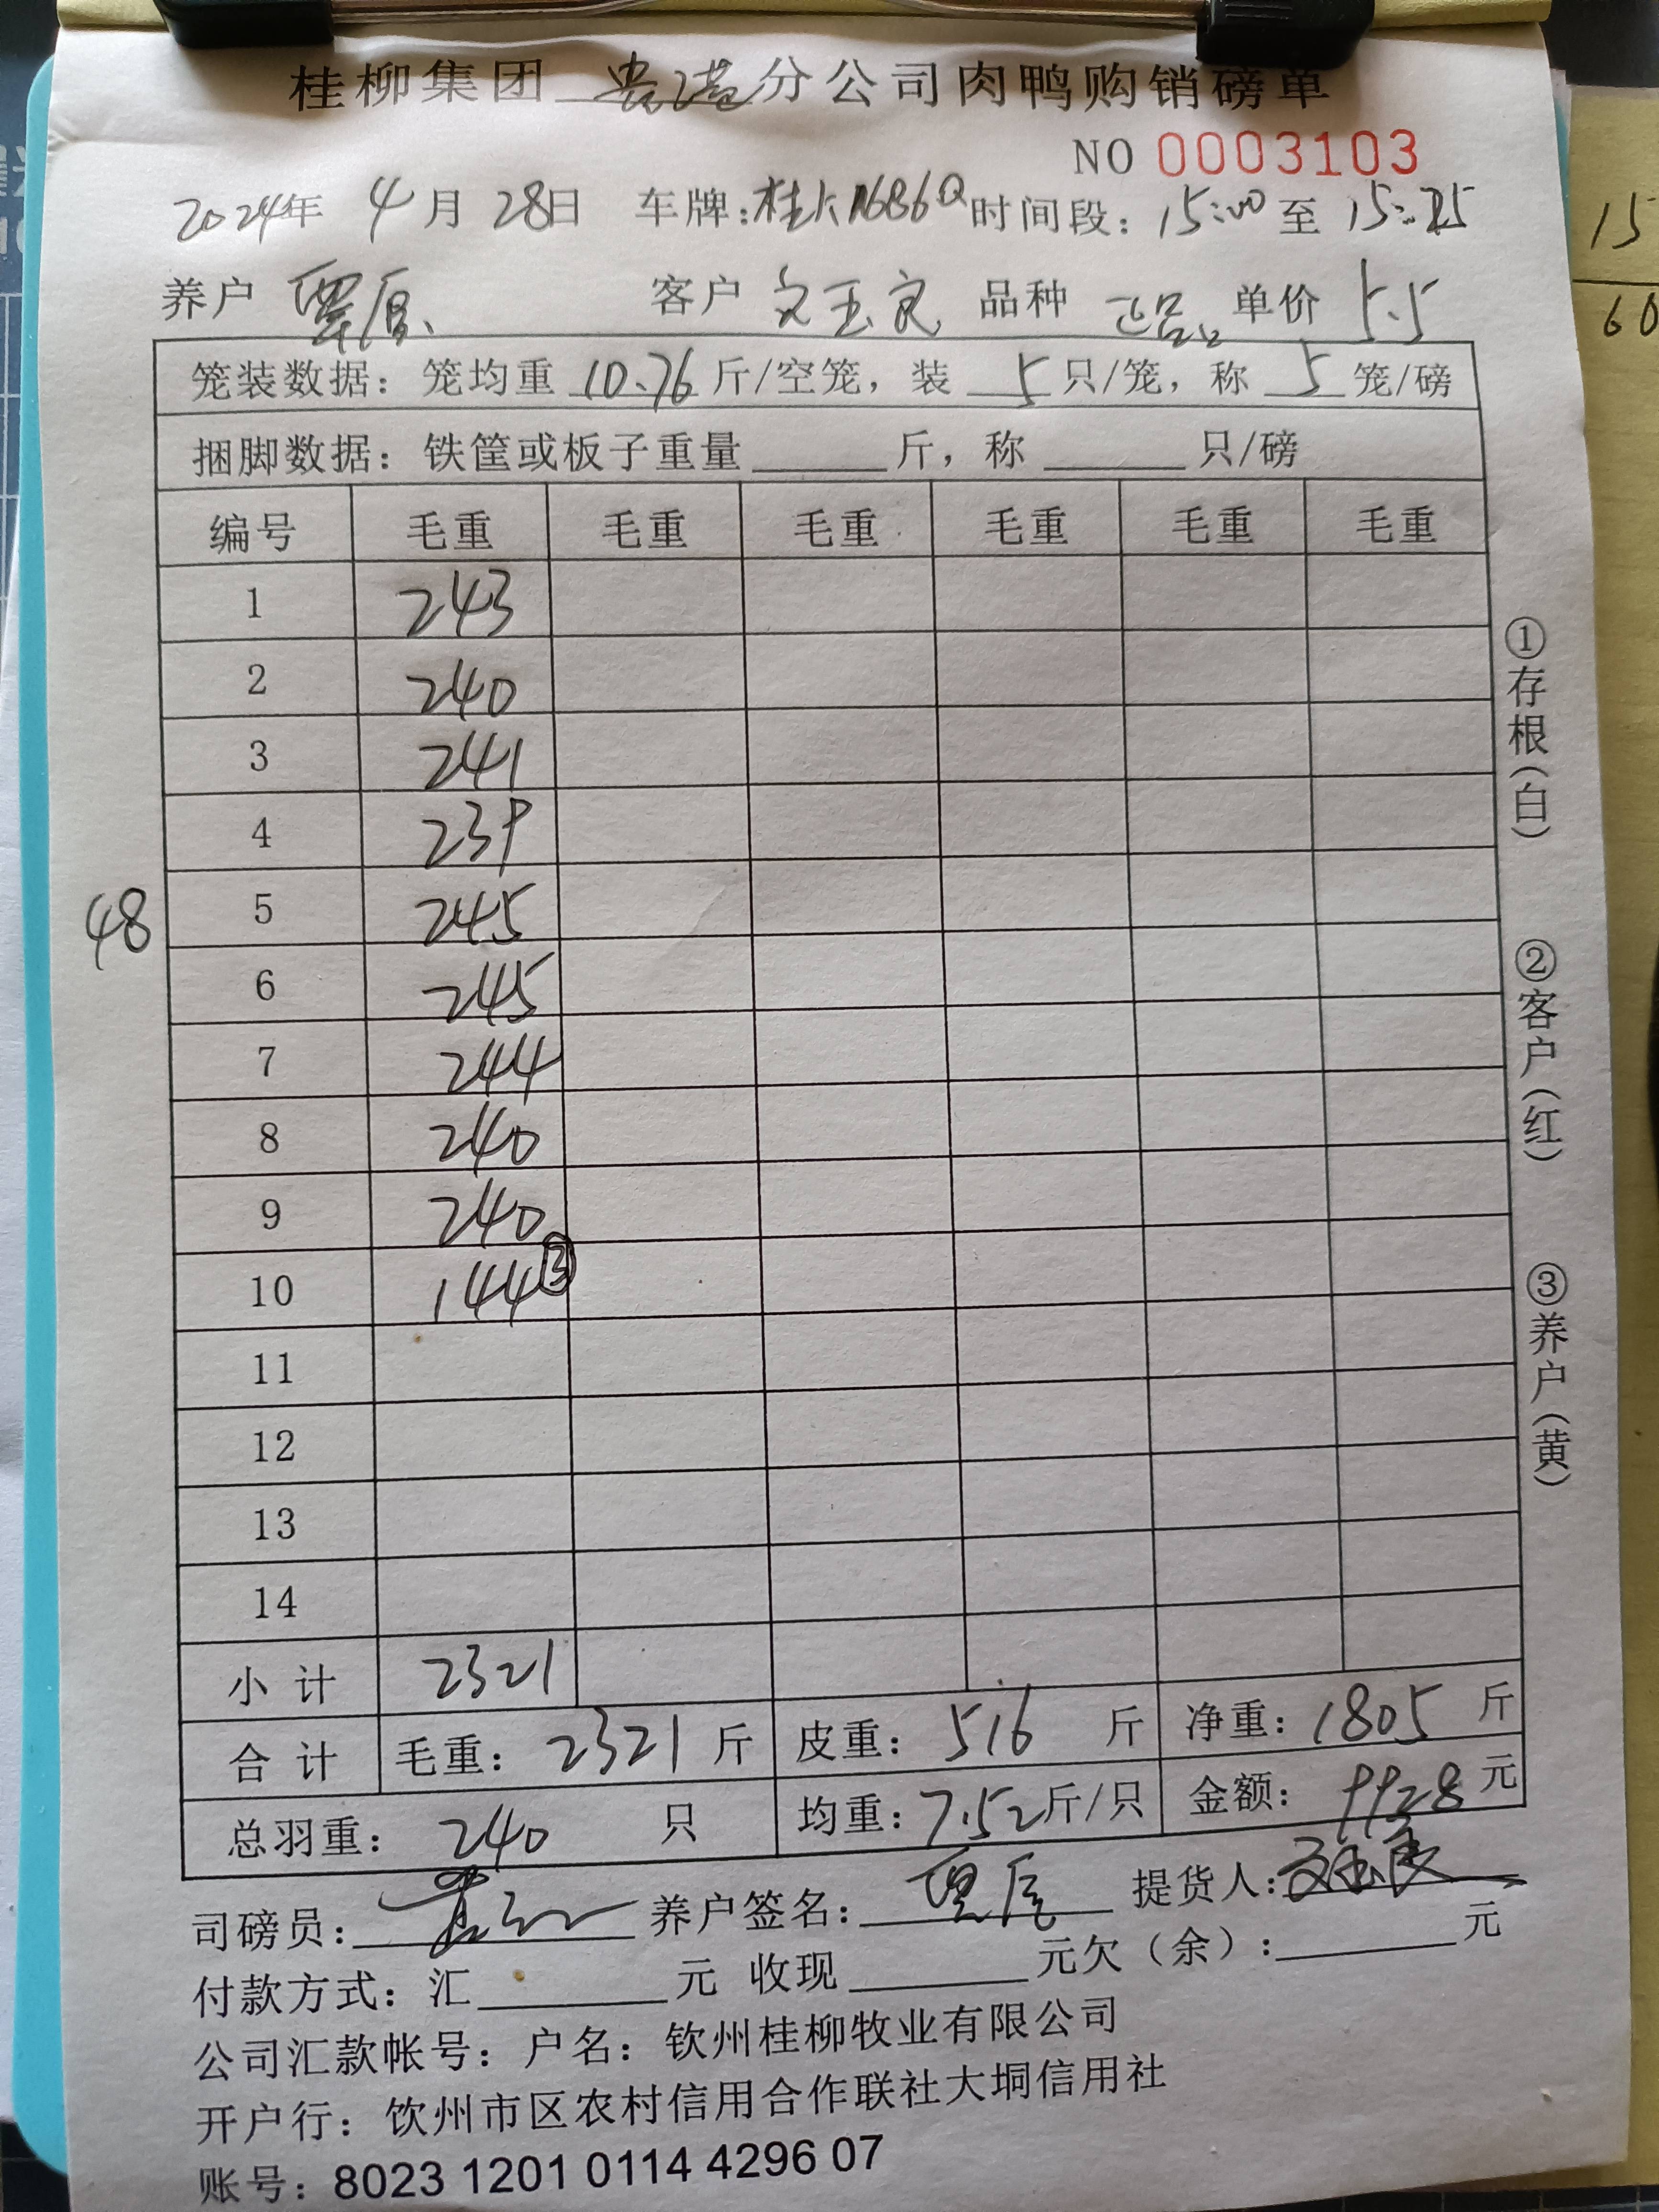 桂柳集团 贵港 分公司肉鸭购销磅单
NO 0003103
2024年 4月 28日 车牌:桂KN6B6Q 时间段: 15:00 至 15:25
养户 覃 客户 文玉良 品种 正品 单价 5.5
笼装数据: 笼均重 10.76 斤/空笼, 装 5 只/笼, 称 5 笼/磅
捆脚数据: 铁筐或板子重量 斤, 称 只/磅
编号 毛重 毛重 毛重 毛重 毛重 毛重
1 243
2 240
3 241
4 239
5 245
6 245
7 244
8 240
9 240
10 144 ③
11
12
13
14
48
小计 2321
合计 毛重: 2321 斤 皮重: 516 斤 净重: 1805 斤
总羽重: 240 只 均重: 7.52斤/只 金额: 9928 元
司磅员: 养户签名: 提货人: 文玉良
付款方式: 汇 元 收现 元欠(余): 元
公司汇款帐号: 户名: 钦州桂柳牧业有限公司
开户行: 钦州市区农村信用合作联社大垌信用社
账号: 8023 1201 0114 4296 07
①存根(白)
②客户(红)
③养户(黄)
15
60